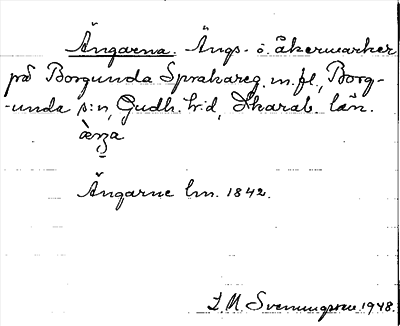 Ängarna. Ängs- o. åkermarker
på Borgunda Sprakareg. m. fl., Borg-
-unda s:n, Gudh. h:d, Skarab. län.
àŋa
Ängarne lm. 1842.
1948.